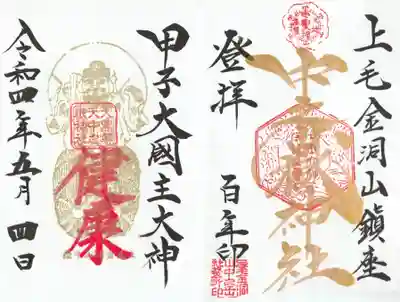 上毛金洞山鎮座
中之嶽神社
登拝
百年印
甲子大國主大神
健康
令和四年五月四日